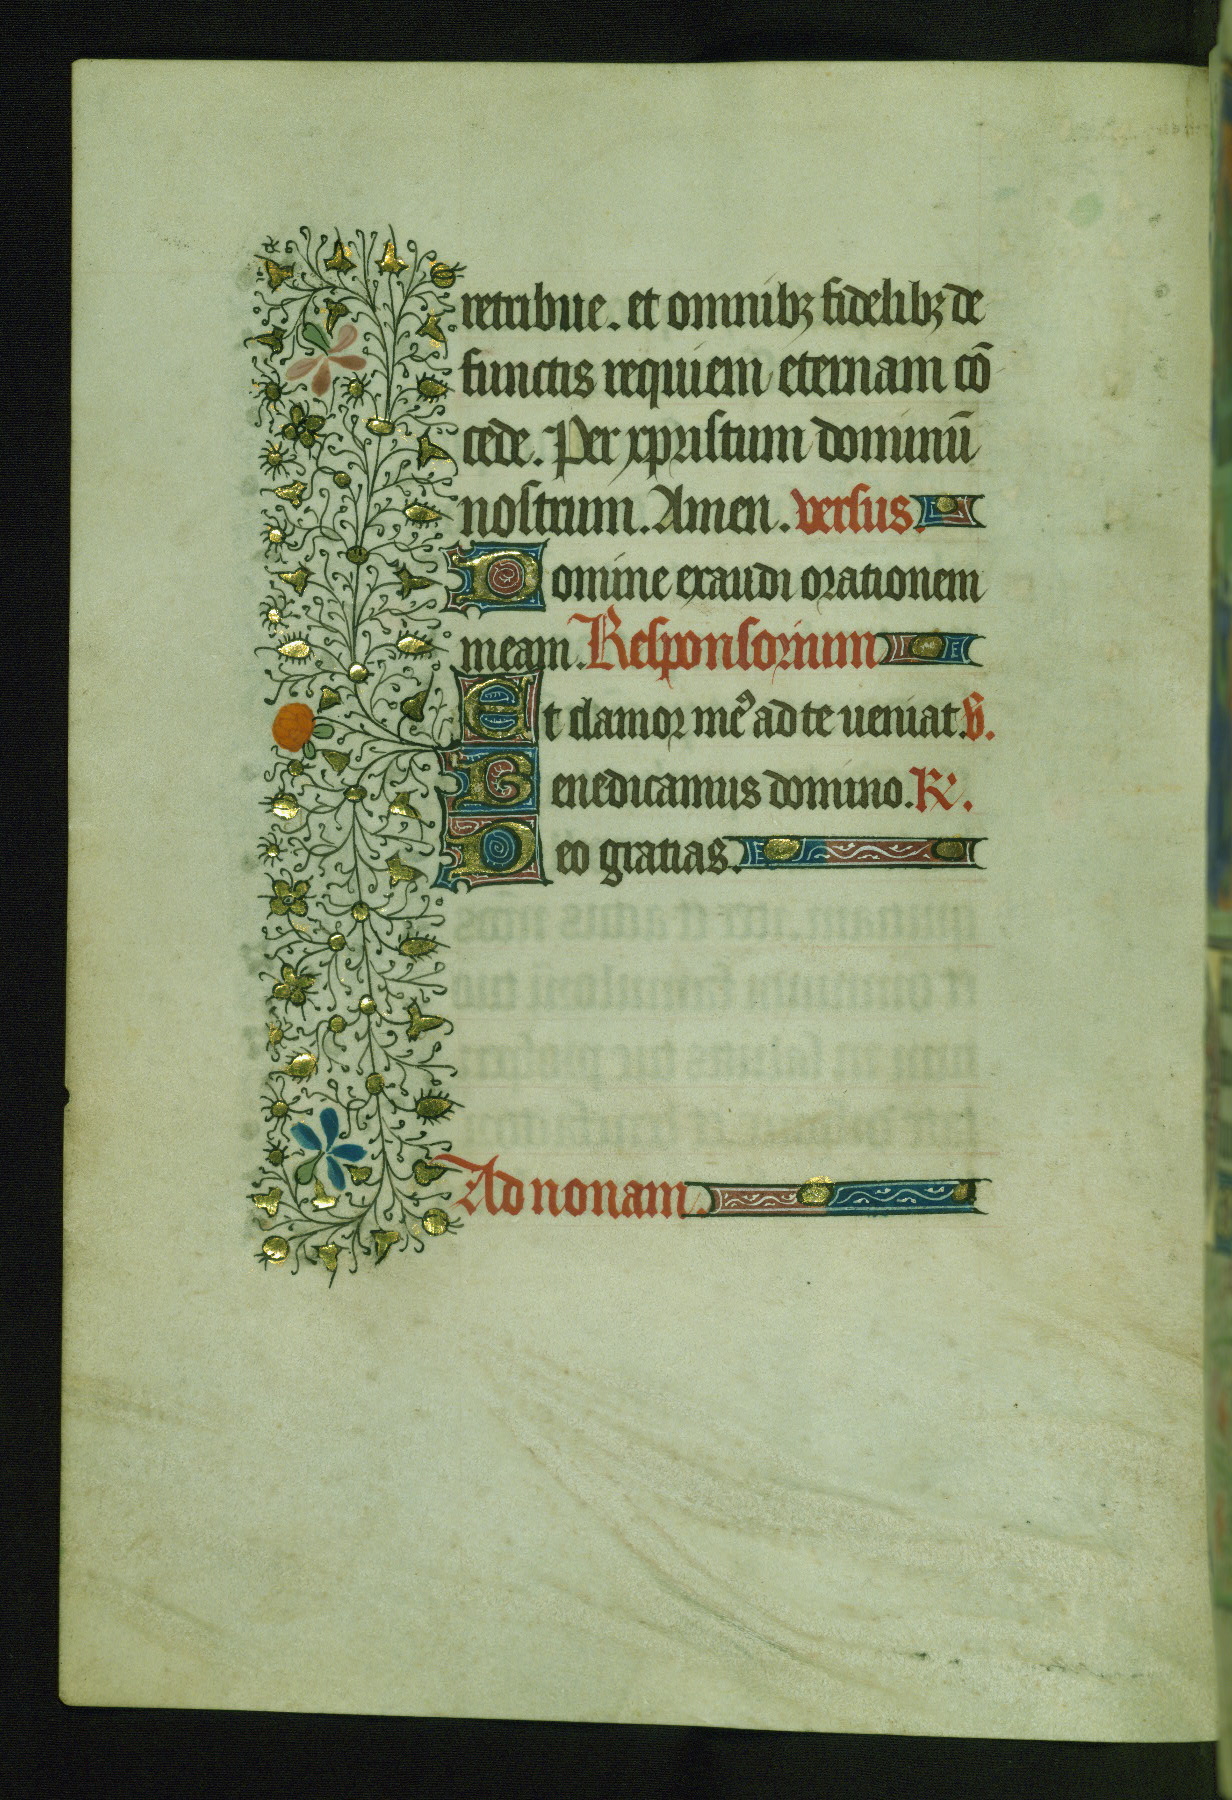 retribue. et omnibꝫ fidelibꝫ de
functis requiem eternam cō
cede. Per xpristum dominū
nostrum. Amen. versus.
Domine exaudi orationem
meam. Responsorium
Et clamor meꝰ ad te ueniat. V̄.
Benedicamus domino. R̷.
Deo gratias.
Ad nonam.